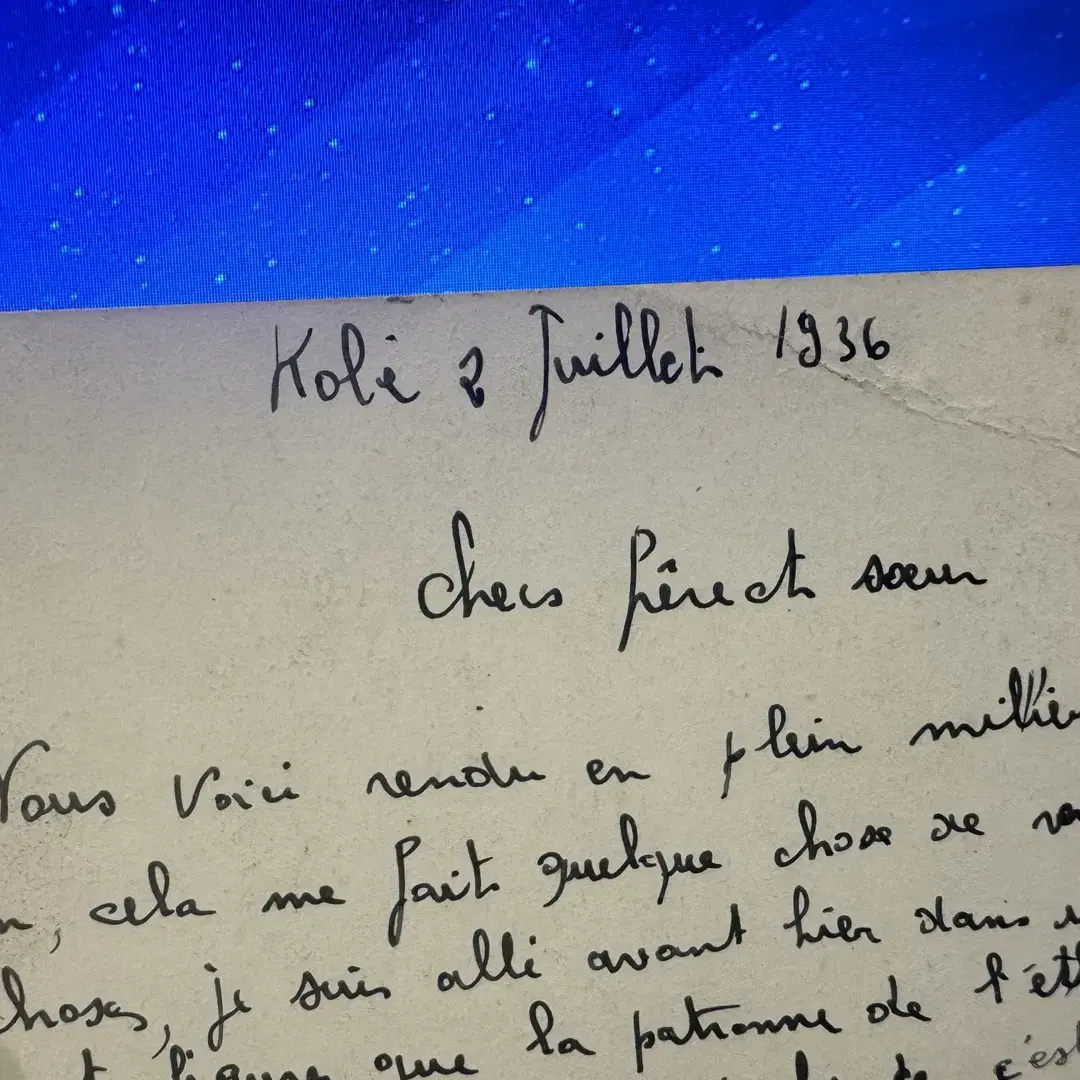 Kobé 2 Juillet 1936
Chers frère et soeur
Nous Voici rendu en plein
cela me fait quelque chose de
je suis allé avant hier dans
que la patronne de
c'est